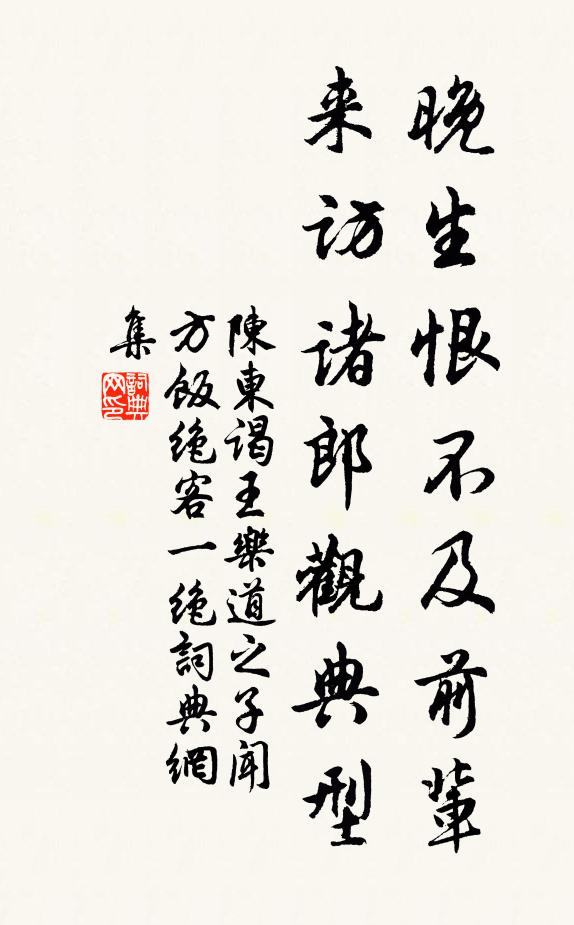 晚生恨不及前輩
来訪諸郎觀典型
陳東謁王樂道之子聞
方飯绝客一绝詞典網
集
詞典网印